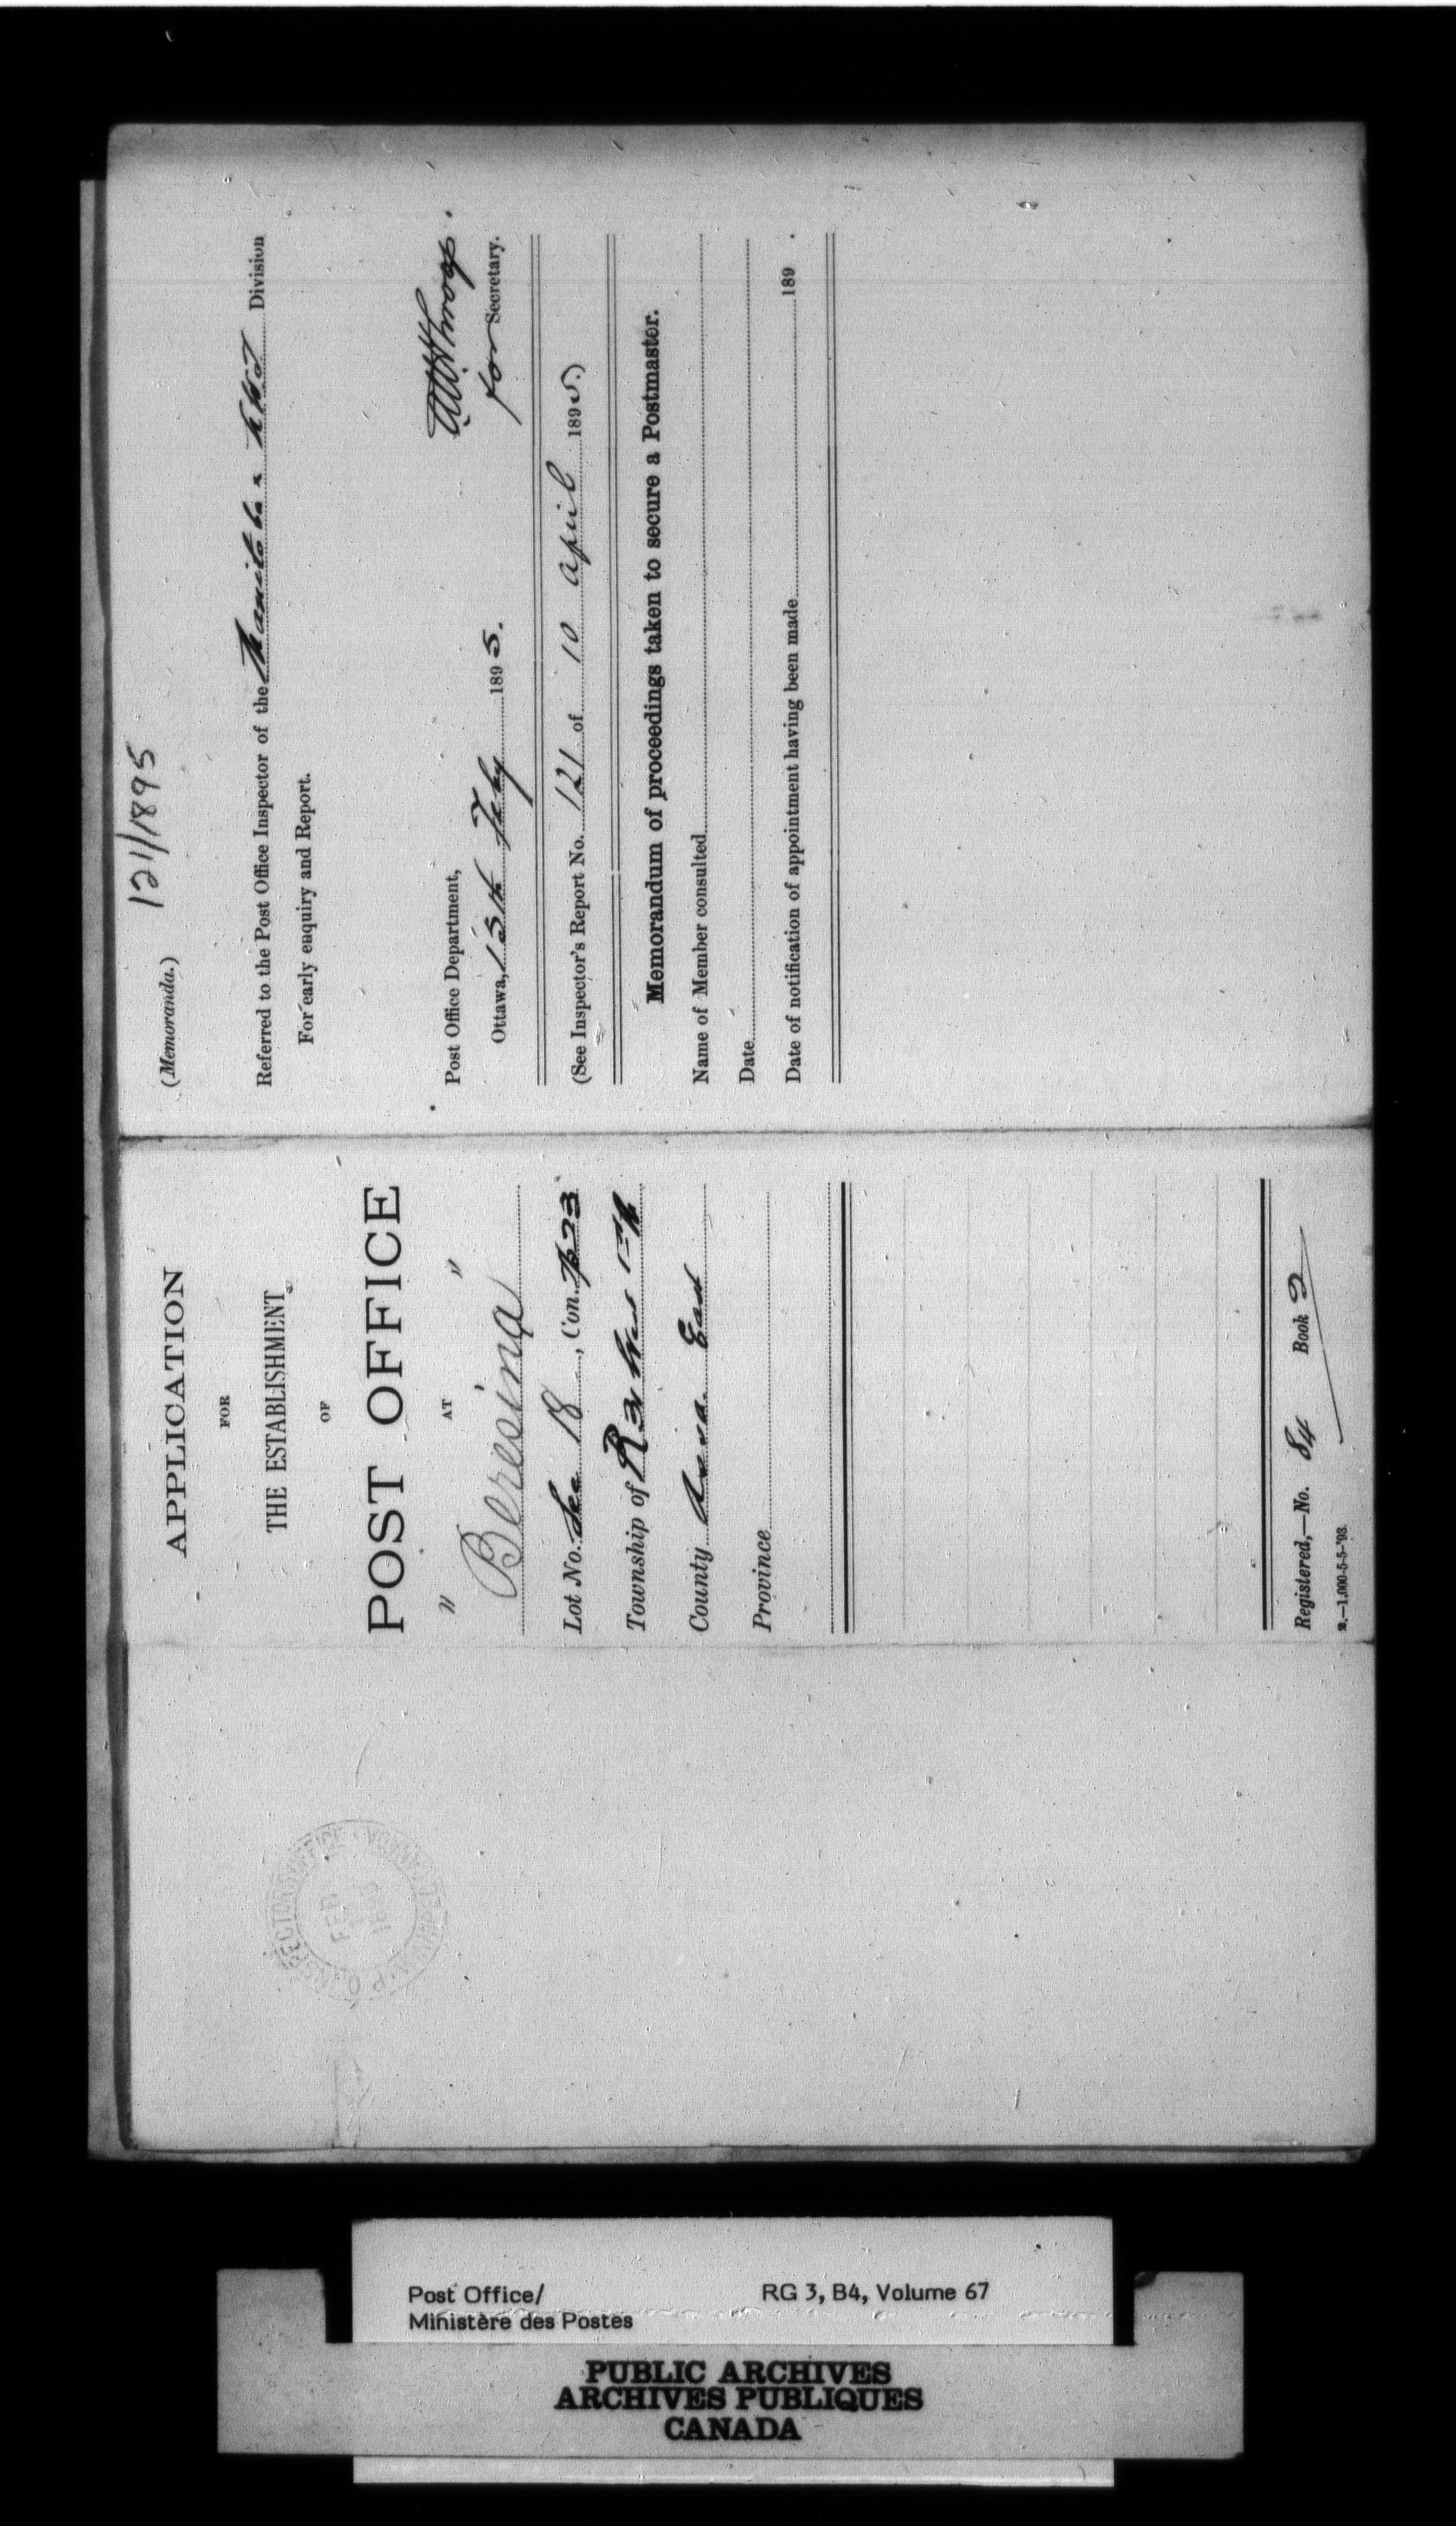 121/1895
(Memoranda.)
Referred to the Post Office Inspector of the Manitoba & NWT Division
For early enquiry and Report.
for Secretary.
Post Office Department,
Ottawa, 15th Feby 1895.
(See Inspector's Report No. 121 of 10 April 1895.)
Memorandum of proceedings taken to secure a Postmaster.
Name of Member consulted
Date
Date of notification of appointment having been made 189 .
APPLICATION
FOR
THE ESTABLISHMENT
OF
POST OFFICE
" AT "
Beresina
Lot No. Sec 18, Con. Tp 23
Township of R 31 West 1st
County Assa. East
Province
Registered,—No. 84 Book 2
2.—1,000-5-5-'93.
P.O. INSPECTOR'S OFFICE
FEB
1895
Post Office/
Ministère des Postes
RG 3, B4, Volume 67
PUBLIC ARCHIVES
ARCHIVES PUBLIQUES
CANADA